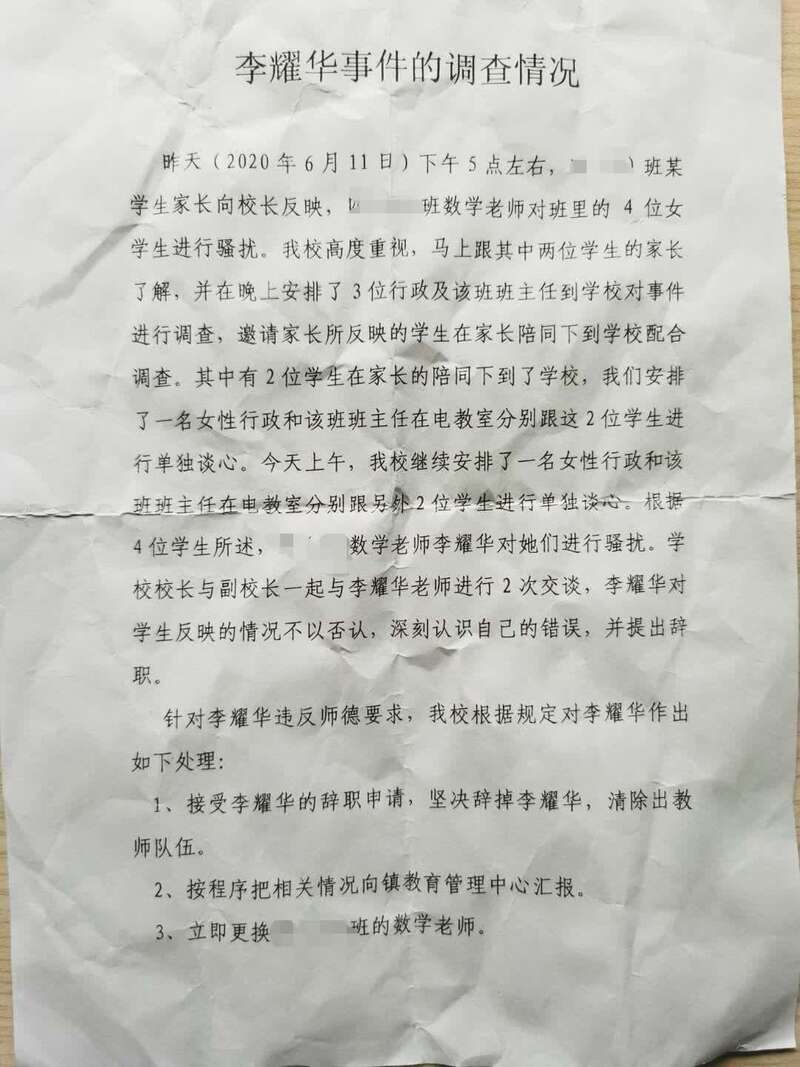 李耀华事件的调查情况
昨天（2020年6月11日）下午5点左右，）班某
学生家长向校长反映，班数学老师对班里的 4 位女
学生进行骚扰。我校高度重视，马上跟其中两位学生的家长
了解，并在晚上安排了3位行政及该班班主任到学校对事件
进行调查，邀请家长所反映的学生在家长陪同下到学校配合
调查。其中有2位学生在家长的陪同下到了学校，我们安排
了一名女性行政和该班班主任在电教室分别跟这2位学生进
行单独谈心。今天上午，我校继续安排了一名女性行政和该
班班主任在电教室分别跟另外2位学生进行单独谈心。根据
4位学生所述，数学老师李耀华对她们进行骚扰。学
校校长与副校长一起与李耀华老师进行2次交谈，李耀华对
学生反映的情况不以否认，深刻认识自己的错误，并提出辞
职。
针对李耀华违反师德要求，我校根据规定对李耀华作出
如下处理：
1、接受李耀华的辞职申请，坚决辞掉李耀华，清除出教
师队伍。
2、按程序把相关情况向镇教育管理中心汇报。
3、立即更换班的数学老师。